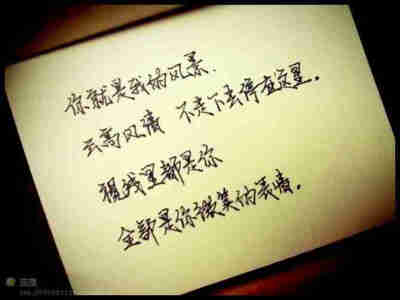 你就是我的风景.
云高风清 不走下去停在这里。
线里都是你
全部是你微笑的表情。